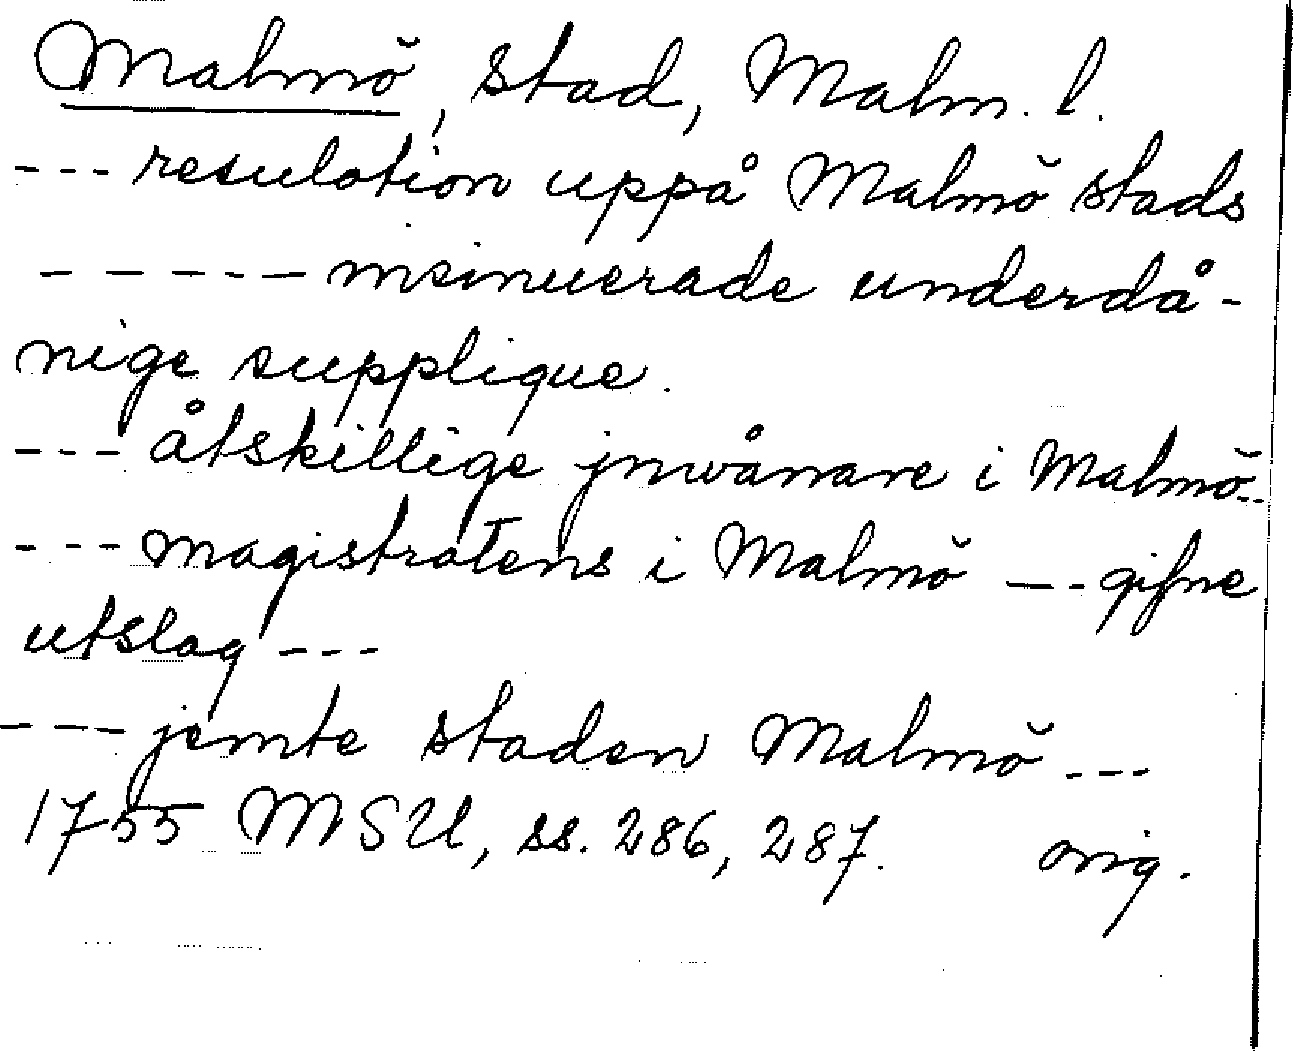 Malmö, stad, Malm. l.
--- resulotion uppå Malmö stads
------ insinuerade underdå-
nige supplique.
--- åtskillige jnwånare i Malmö--
--- magistratens i Malmö --- gifne
utslag ---
--- jemte staden Malmö ---
1755 MSU, ss. 286, 287. orig.